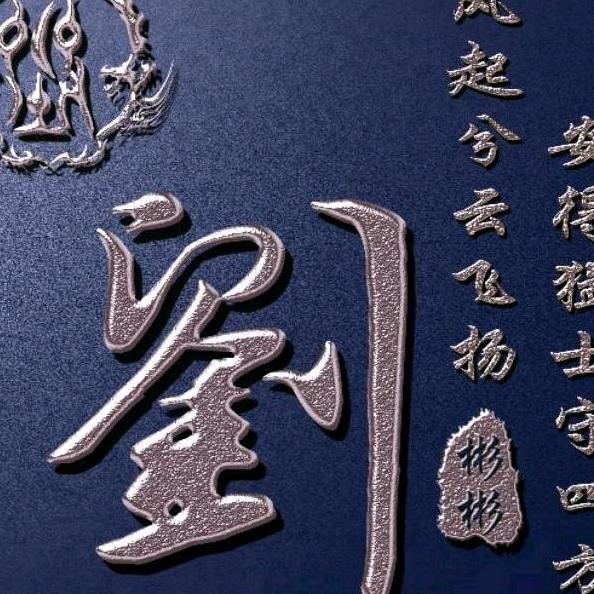 劉
风起兮云飞扬
安得猛士守四方
彬彬